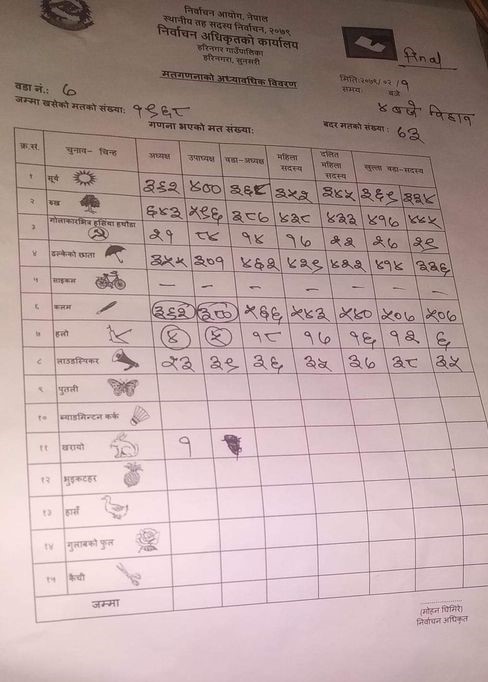 निर्वाचन आयोग, नेपाल
स्थानीय तह सदस्य निर्वाचन, २०७९
निर्वाचन अधिकृतको कार्यालय
हरिनगर गाउँपालिका
हरिनगरा, सुनसरी
Final
मतगणनाको अध्यावधिक विवरण
मितिः२०७९/०२/१
वडा नं.: ६
समयः बजे
४ बजे विहान
जम्मा खसेको मतको संख्याः १९६८
गणना भएको मत संख्याः
बदर मतको संख्याः ६३
क्र.सं. चुनाव- चिन्ह अध्यक्ष उपाध्यक्ष वडा-अध्यक्ष महिला सदस्य दलित महिला सदस्य खुल्ला वडा-सदस्य
१ सूर्य ३६२ ४०० ३६८ ३५२ ३४५ ३६९ ३३४
२ रुख ६४३ ५९६ ३८७ ४३८ ४३३ ४१७ ४४५
३ गोलाकारभित्र हँसिया हथौडा २१ ८४ १४ १७ २२ २७ २९
४ ढल्केको छाता ३५५ ३०१ ४६२ ४२९ ४२२ ४१४ ३३६
५ साइकल – – – – – – –
६ कलम ३६२ ३८० ५६६ ५४३ ५४० ५०७ ५०७
७ हलो ४ ५ १८ १७ १६ १२ ६
८ लाउडस्पिकर २३ ३९ ३६ ३५ ३७ ३८ ३५
९ पुतली
१० ब्याडमिन्टन कर्क
११ खरायो १
१२ भुइकटहर
१३ हाँस
१४ गुलाबको फुल
१५ कैंची
जम्मा
(मोहन घिमिरे)
निर्वाचन अधिकृत